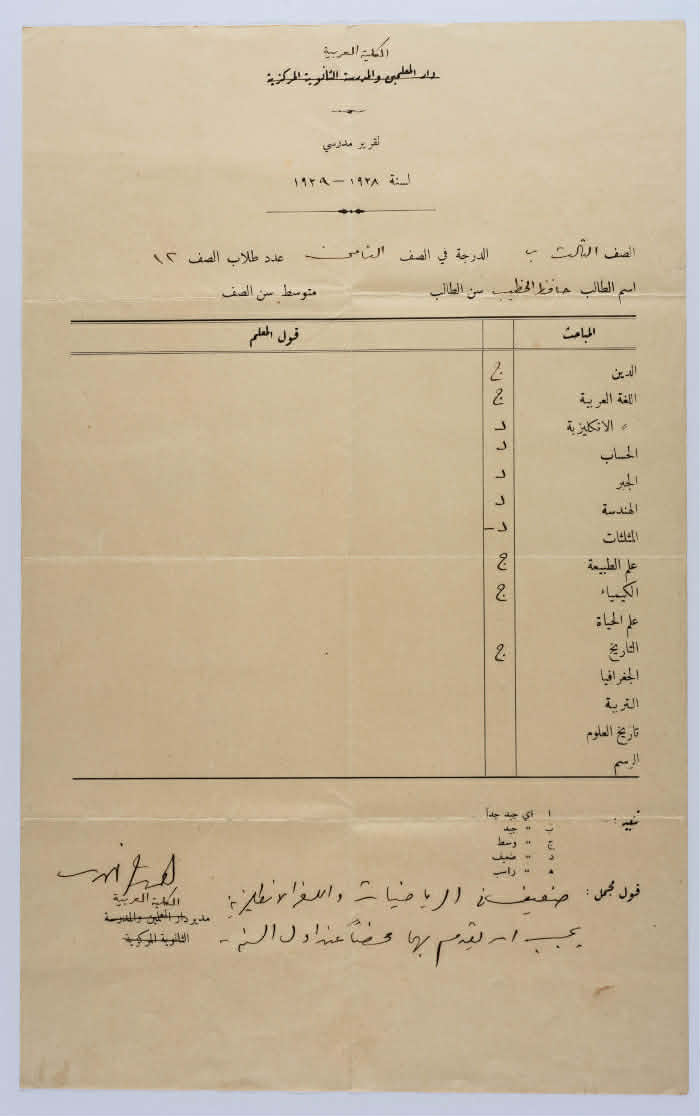 الكلية العربية
دار المعلمين والمدرسة الثانوية المركزية
تقرير مدرسي
لسنة ١٩٢٨ – ١٩٢٩
الصف الثالث ب الدرجة في الصف الثامن عدد طلاب الصف ١٢
اسم الطالب حافظ الخطيب سن الطالب متوسط سن الصف
المباحث قول المعلم
الدين ج
اللغة العربية ج
〃 الانكليزية د
الحساب د
الجبر د
الهندسة د
المثلثات د–
علم الطبيعة ج
الكيمياء ج
علم الحياة
التاريخ ج
الجغرافيا
التربية
تاريخ العلوم
الرسم
تنبيه : ا اي جيد جداً
ب 〃 جيد
ج 〃 وسط
د 〃 ضعيف
ه 〃 راسب
قول مجمل : ضعيف في الرياضيات واللغة الانكليزية
يجب ان يتقدم بهما
الكلية العربية
مدير دار المعلمين والمدرسة
الثانوية المركزية